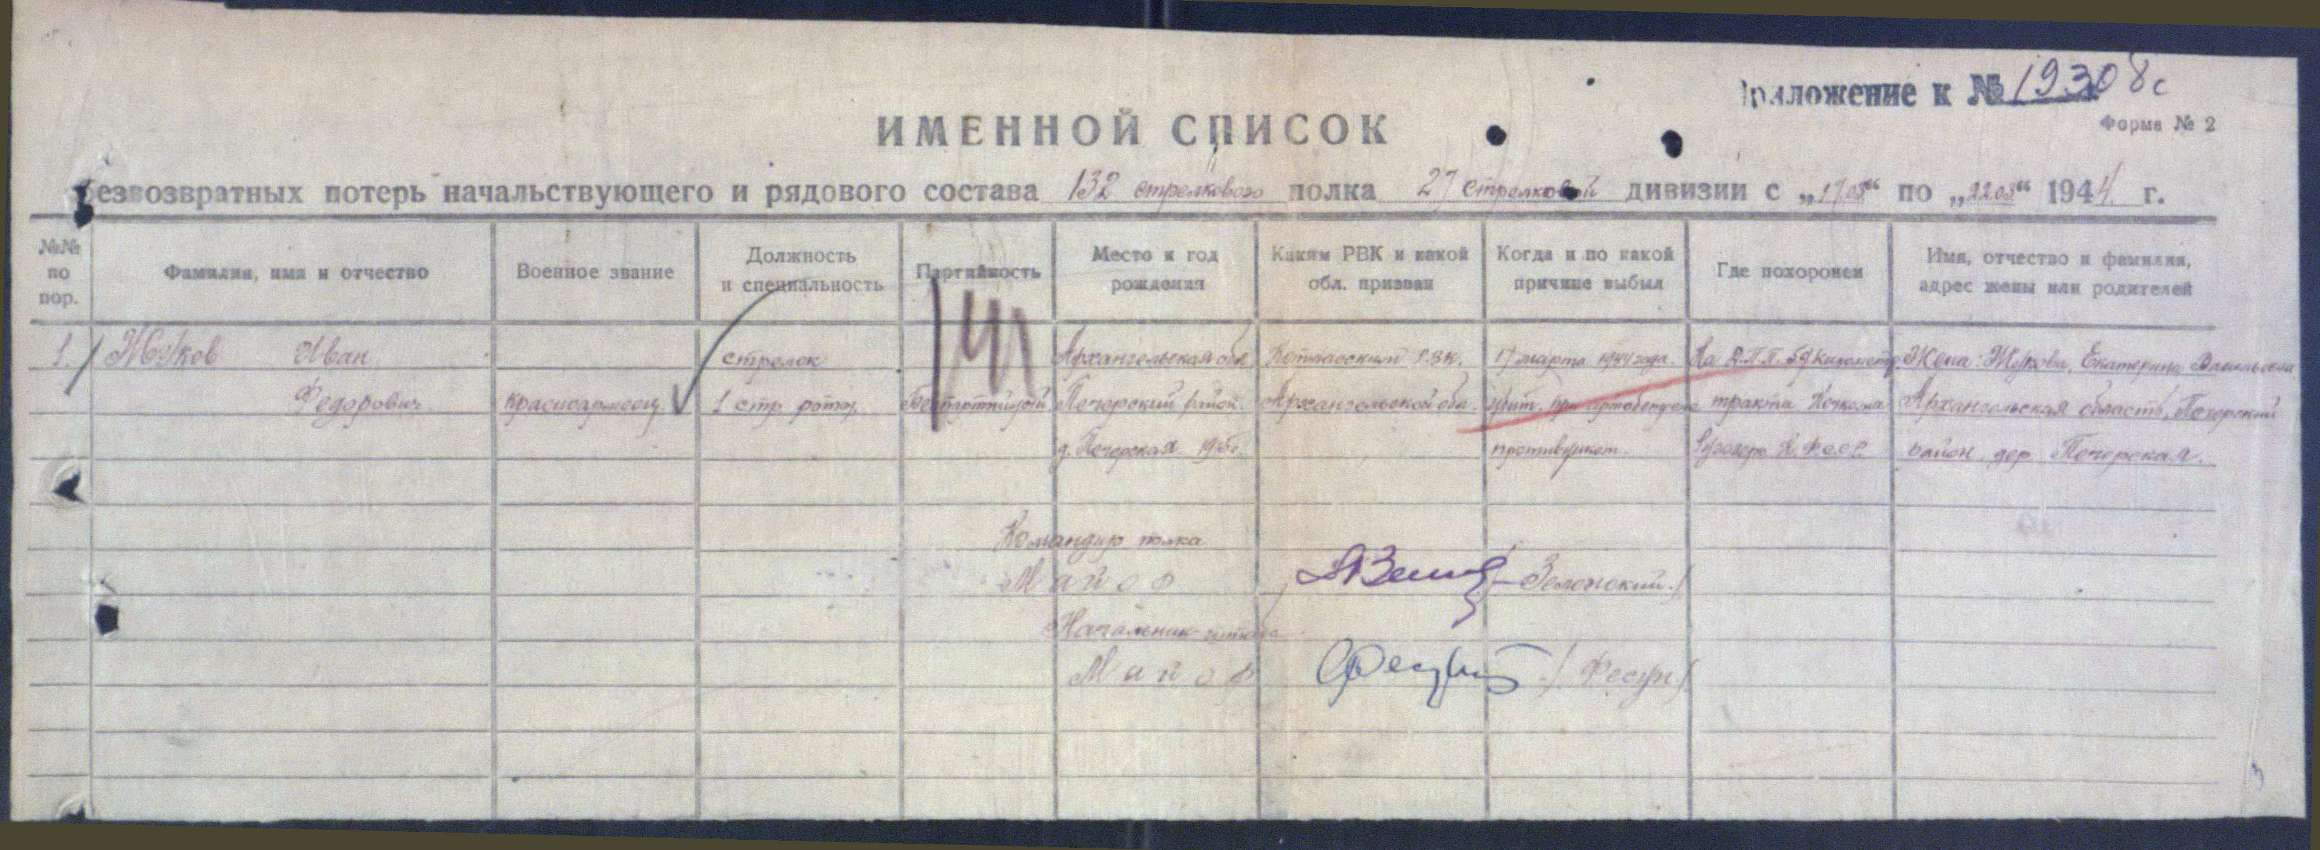 Приложение к № 19308с
Форма № 2
ИМЕННОЙ СПИСОК
безвозвратных потерь начальствующего и рядового состава 132 стрелкового полка 27 стрелковой дивизии с „17.03“ по „22.03“ 1944 г.
№№ по пор.
Фамилия, имя и отчество
Военное звание
Должность и специальность
Партийность
Место и год рождения
Каким РВК и какой обл. призван
Когда и по какой причине выбыл
Где похоронен
Имя, отчество и фамилия, адрес жены или родителей
1. Жуков Иван стрелок Архангельская обл. Котласским РВК. 17 марта 1944 года. На 59 километре Жена: Жукова, Екатерина Васильевна
Федорович красноармеец 1 стр. роты Беспартийный Печорский район Архангельской обл. убит при артобстреле тракта Кочкома Архангельская область, Печорский
д. Печорская противником. Ругозеро район дер. Печорская.
Командир полка
Майор /Зеленский./
Начальник штаба
Майор /Фесун/